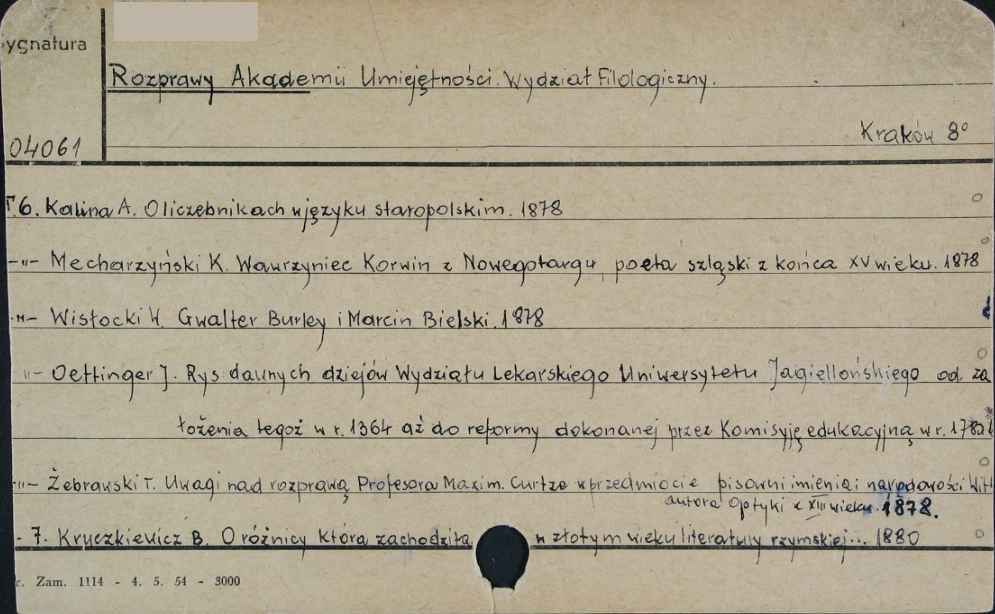 ygnatura
Rozprawy Akademii Umiejętności. Wydział Filologiczny.
04061
Kraków 8°
T 6. Kalina A. O liczebnikach w języku staropolskim. 1878
-"- Mecharzyński K. Wawrzyniec Korwin z Nowegotargu, poeta szląski z końca XV wieku. 1878
-"- Wisłocki W. Gwalter Burley i Marcin Bielski. 1878
"- Oettinger J. Rys dawnych dziejów Wydziału Lekarskiego Uniwersytetu Jagiellońskiego od za
łożenia tegoż w r. 1364 aż do reformy dokonanej przez Komisyję edukacyjną w r.
-"- Żebrawski T. Uwagi nad rozprawą Profesora Maxim. Curtze w przedmiocie pisowni imienia i narodowości
autora Optyki z XIII wieku. 1878.
- 7. Kruczkiewicz B. O różnicy która zachodziła w złotym wieku literatury rzymskiej... 1880
r. Zam. 1114 - 4. 5. 54 - 3000